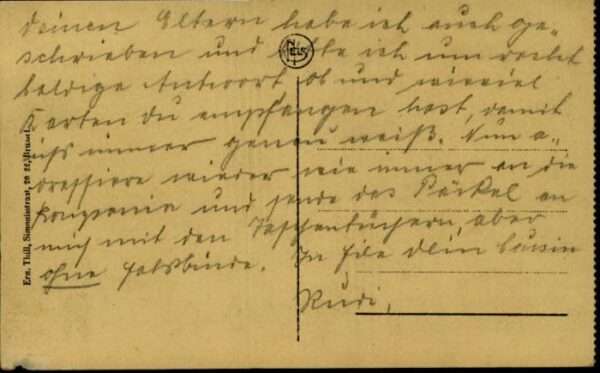 deinen Eltern habe ich auch ge-
schrieben und bitte ich um recht
baldige Antwort, ob und wieviel
Karten du empfangen hast, damit
ichs immer genau weiß. Nun a-
dressiere wieder wie immer an die
Kompanie und sende das Päckel an
mich mit den Taschentüchern, aber
ohne Halsbinde. In Eile dein Cousin
Rudi,
Ern. Thill, Brussel
NELS